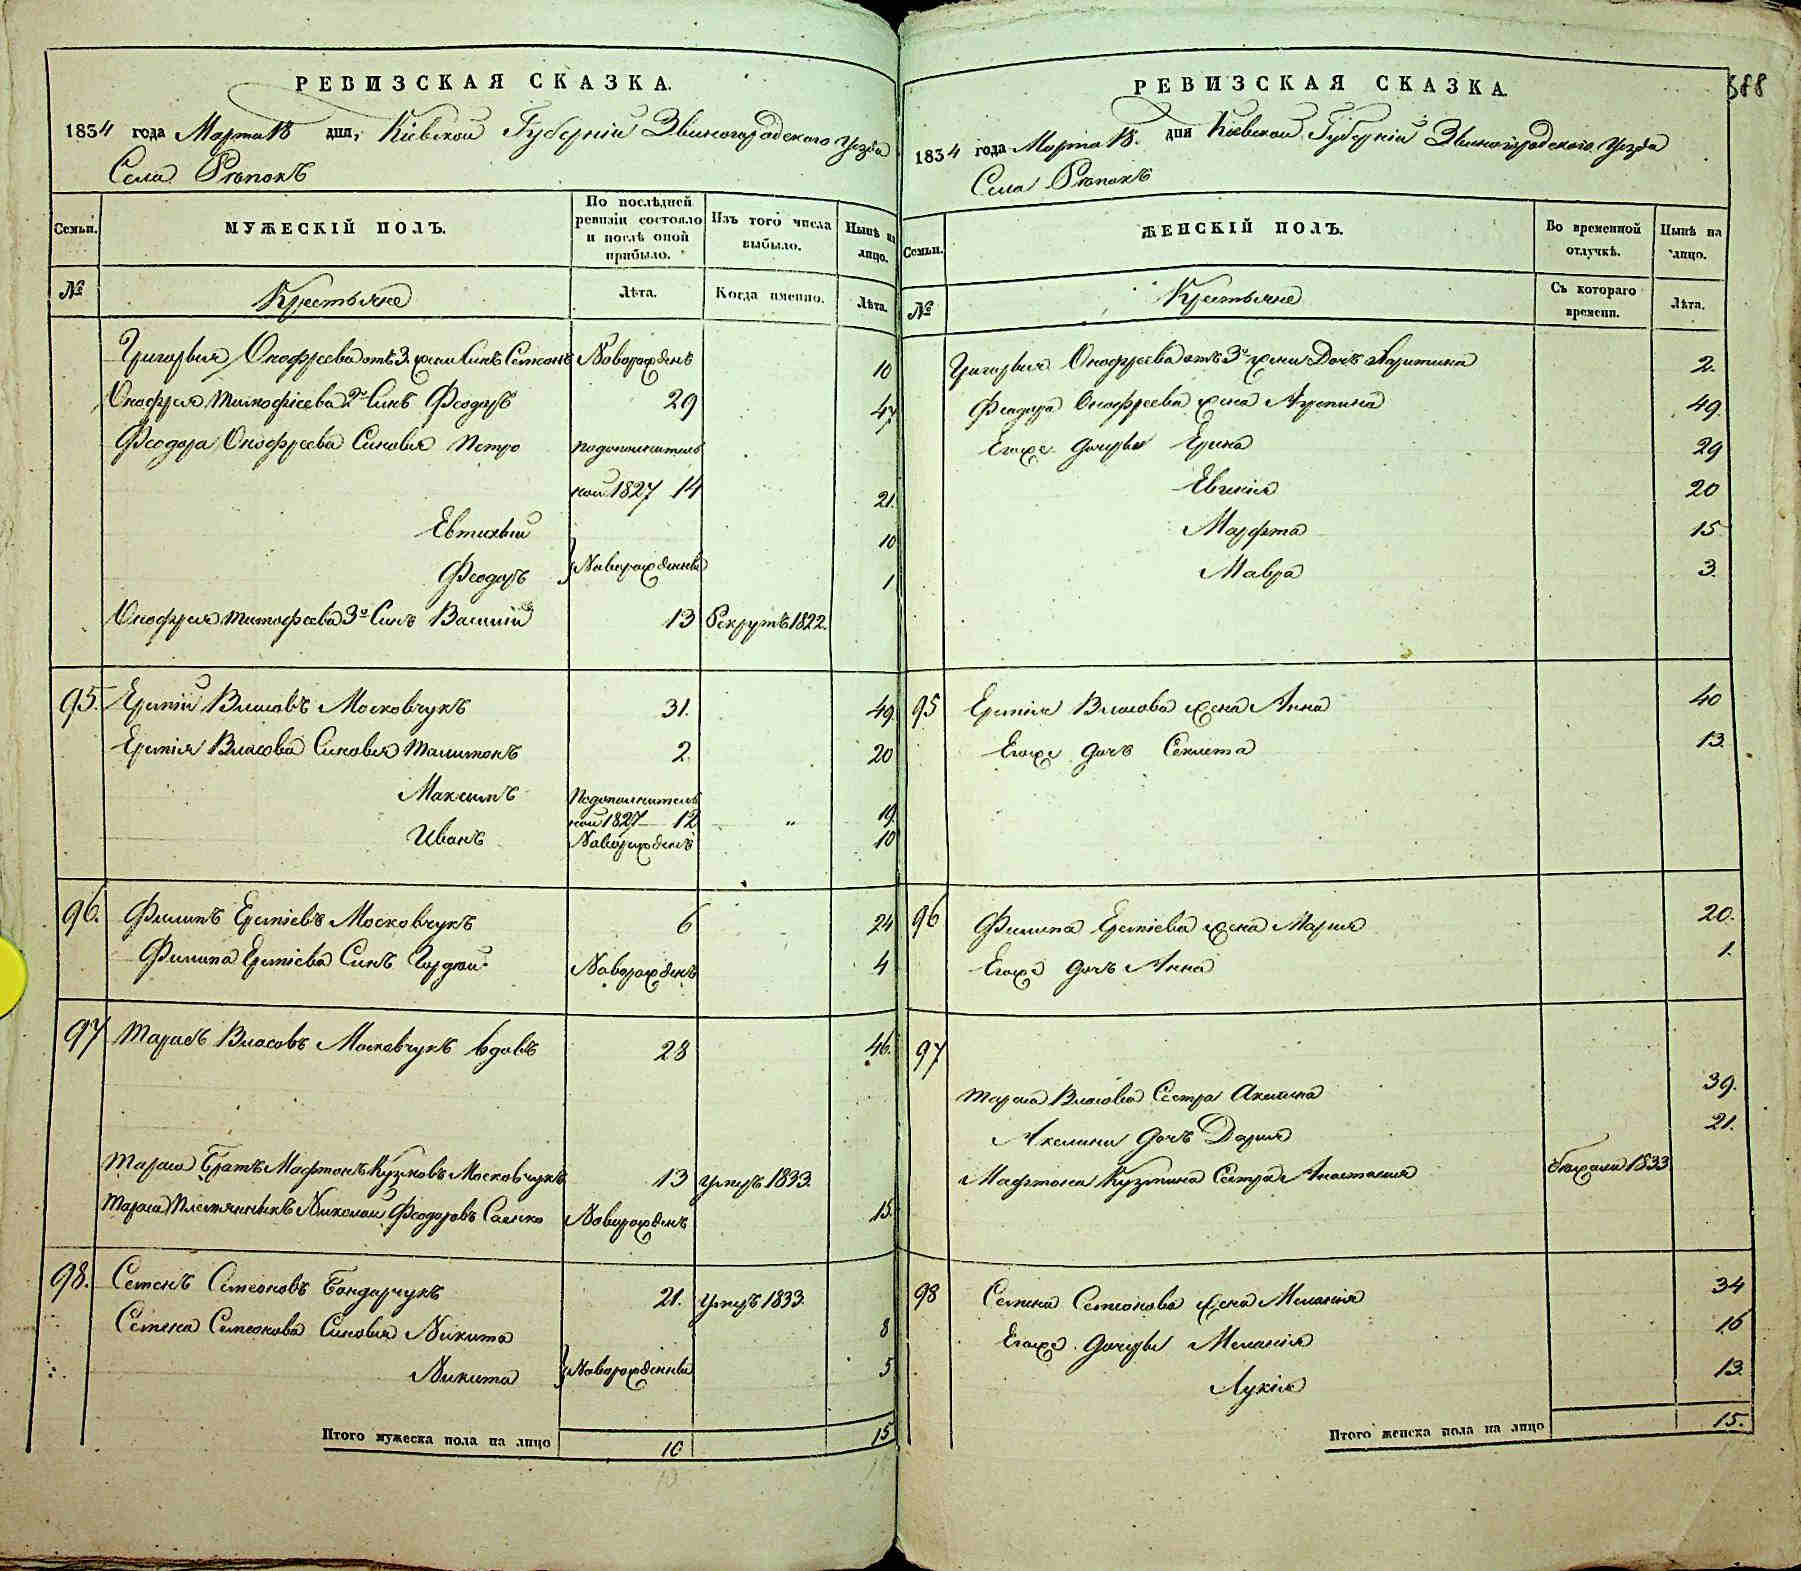 РЕВИЗСКАЯ СКАЗКА.
1834 года Марта 18 дня, Кіевской Губерніи Звиногородского Уезда
Села Репокъ
Семьи. МУЖЕСКІЙ ПОЛЪ. По послѣдней ревизіи состояло и послѣ оной прибыло. Изъ того числа выбыло. Нынѣ на лицо.
№ Крестьяне Лѣта. Когда именно. Лѣта.
Григорія Онофреева отъ 3 жени Синъ Семионъ Новорожденъ 10
Онофрія Тимофіева 2й Синъ Феодоръ 29 47
Феодора Онофреева Синовья Петро подополнитель
ной 1827 14 21.
Евтихый 10
Феодоръ } Новорожденны 1
Онофрія Тимофеева 3й Синъ Василій 13 Рекрутъ 1822.
95. Ермій Власовъ Московчукъ 31. 49.
Ермія Власова Синовья 2. 20
Максимъ Подополнитель
ной 1827 12 " 19.
Иванъ Новорожденъ 10
96. Филипъ Ерміевъ Московчукъ 6 24
Филипа Ерміева Синъ Гордей Новорожденъ 4
97 Тарасъ Власовъ Московчукъ вдовъ 28 46.
Тараса Братъ Кузмовъ Московчукъ 13 умеръ 1833.
Тараса Племянникъ Николай Феодоровъ Новорожденъ 15.
98. Семенъ Семеоновъ Бондарчукъ 21. умеръ 1833.
Семена Семеонова Синовья Никита 8
Никита } Новорожденны 5
Итого мужеска пола на лицо 10 15
388
РЕВИЗСКАЯ СКАЗКА.
1834 года Марта 18. дня Кіевской Губерніи Звиногородского Уезда
Села Репокъ
Семьи. ЖЕНСКІЙ ПОЛЪ. Во временной отлучкѣ. Нынѣ на лицо.
№ Крестьяне Съ котораго времени. Лѣта.
Григорія Онофреева отъ 3й жени Дочъ 2.
Феодора Онофреева жена 49.
Егоже дочеры Ерина 29
Евгенія 20
Марфта 15
Мавра 3.
95 Ермія Власова жена Анна 40
Егоже дочъ Секлета 13.
96 Филипа Ерміева жена Марія 20.
Егоже дочъ Анна 1.
97
Тараса Власова Сестра Акилина 39.
Акилини дочъ Дарія 21.
Кузмина Сестра Анастасія 1833
98 Семена Семеонова жена Меланія 34
Егоже дочеры Меланія 16
Лукія 13.
Итого женска пола на лицо 15.